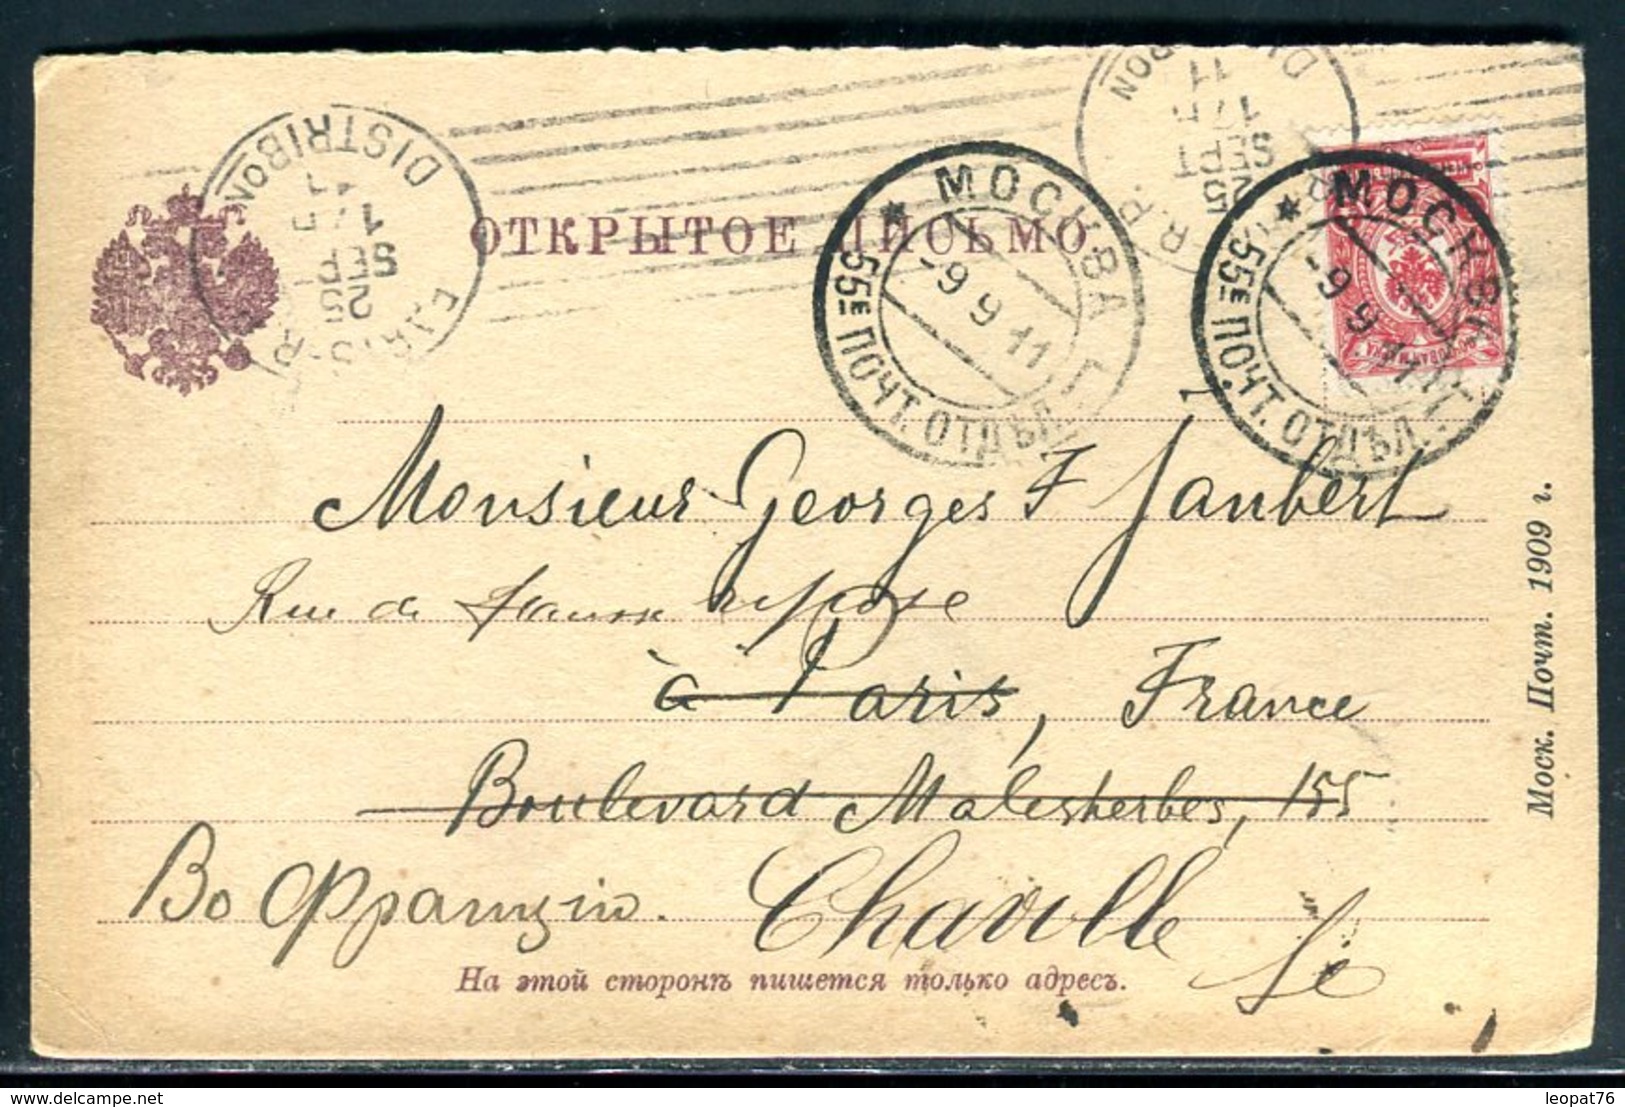 DISTRIBON
17H
SEPT
25
DISTRIBON
11
17H
SEPT
25
ОТКРЫТОЕ ПИСЬМО.
МОСКВА
-9 9 11
55Е ПОЧТ. ОТДѢЛ.
МОСКВА
-9 9 11
55Е ПОЧТ. ОТДѢЛ.
Monsieur Georges F Jaubert
Rue de
à Paris, France
Boulevard Malesherbes, 155
Во Францiю. Chaville
На этой сторонѣ пишется только адресъ.
Моск. Почт. 1909 г.
leopat76